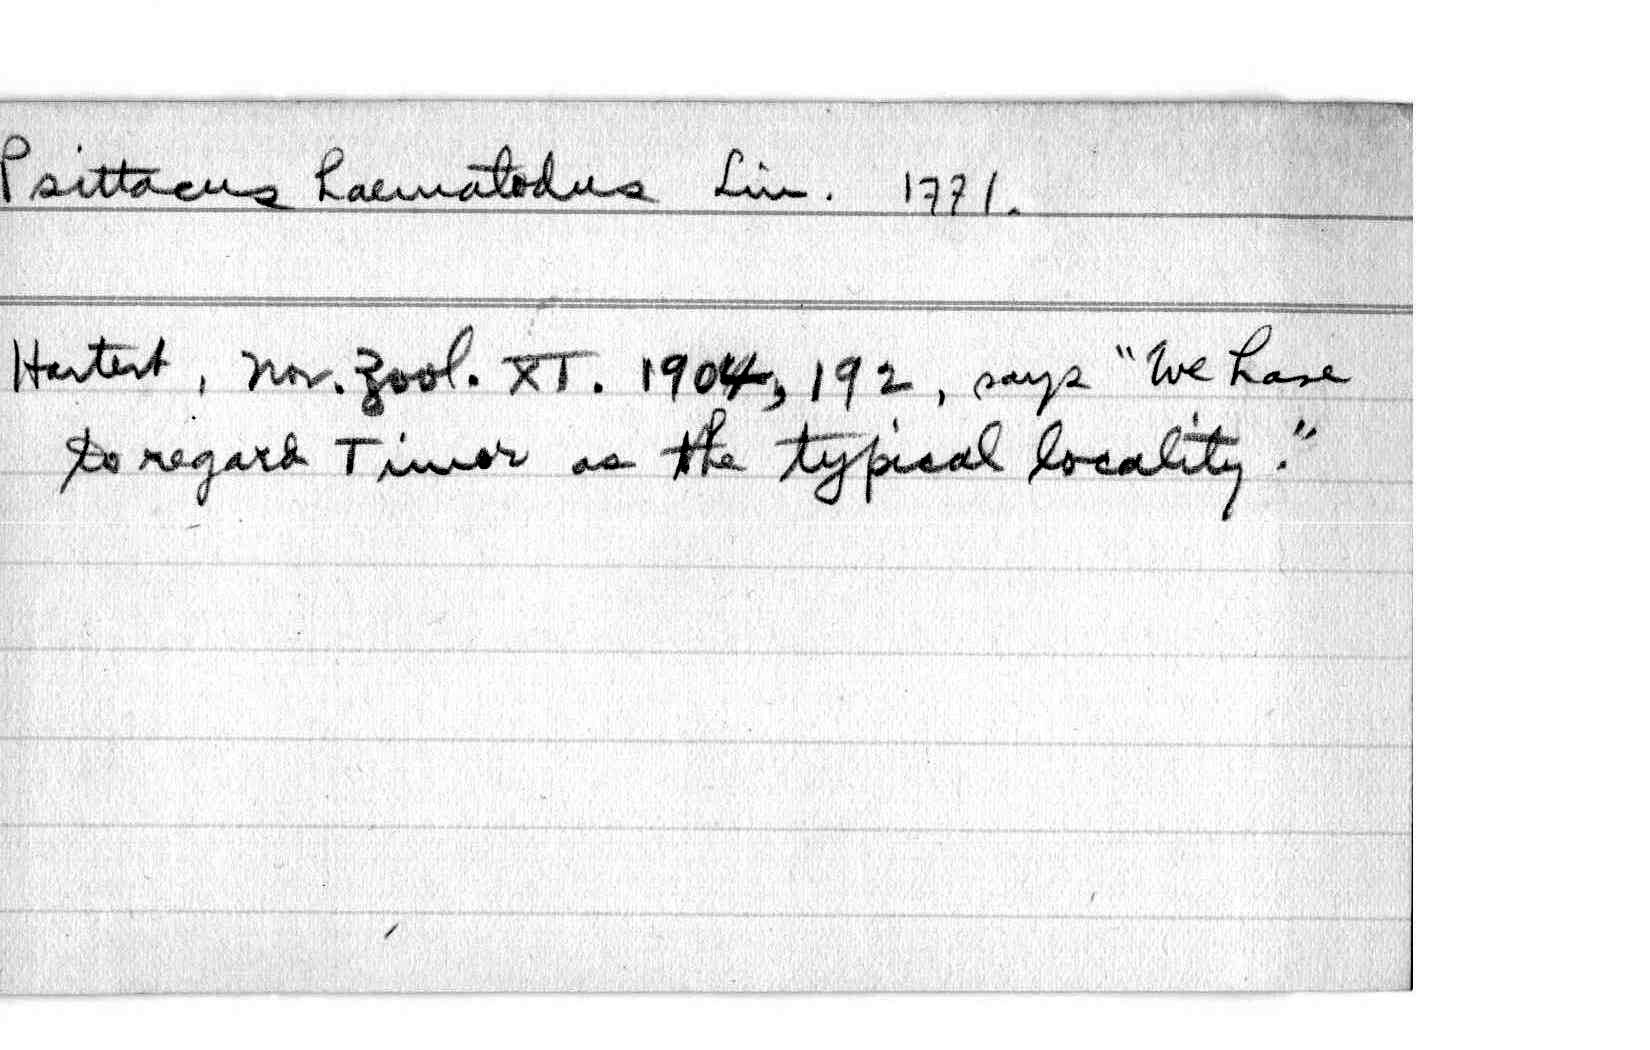 Psittacus haematodus Lin. 1771.
Hartert, Nov. Zool. XI. 1904, 192, says "We have
to regard Timor as the typical locality."